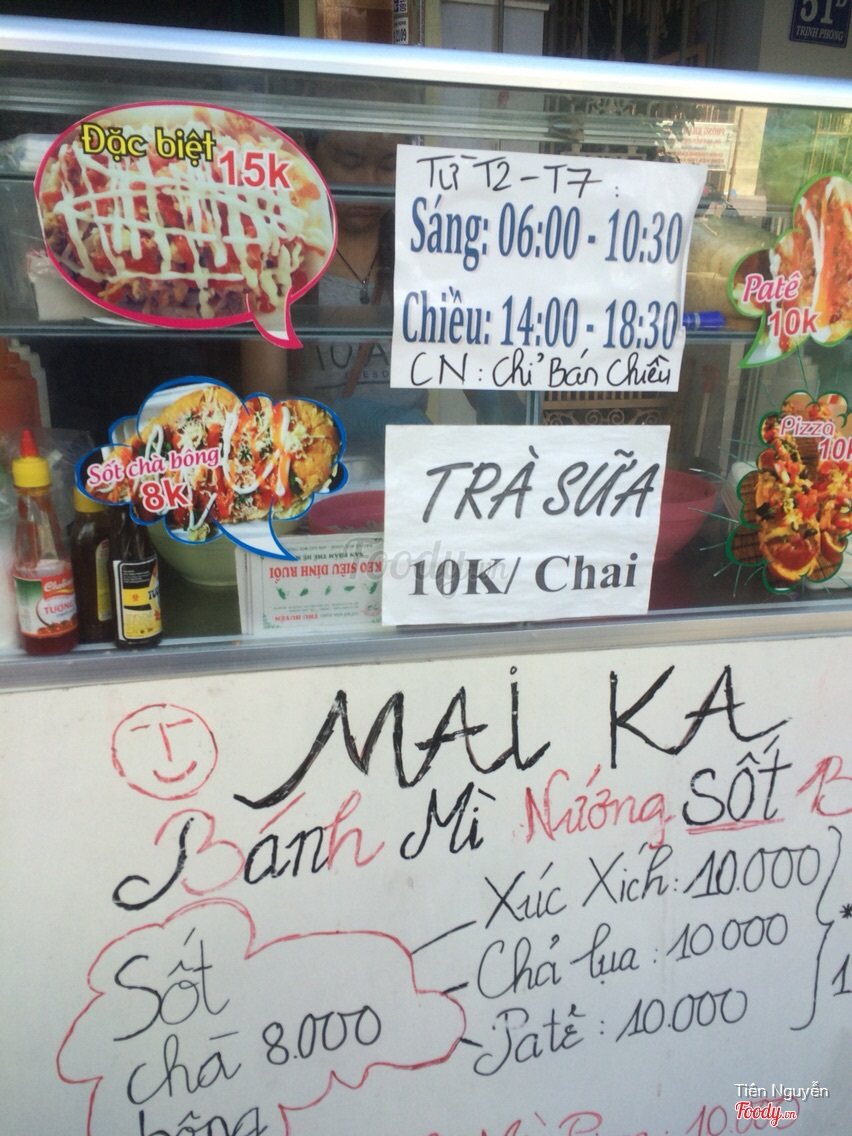 51B
TRỊNH PHONG
Đặc biệt
15k
Từ T2 - T7 :
Sáng: 06:00 - 10:30
Chiều: 14:00 - 18:30
CN : Chỉ Bán Chiều
Patê
10k
Sốt chà bông
8k
Pizza
10k
TRÀ SỮA
10K/ Chai
KEO SIÊU DÍNH RUỒI
THU HUYỀN
TƯƠNG
Foody.vn
MAI KA
Bánh Mì Nướng SỐT B
Xúc Xích: 10.000
Chả lụa : 10.000
Patê : 10.000
Sốt
chà 8.000
bông
10.000
Tiên Nguyễn
Foody.vn